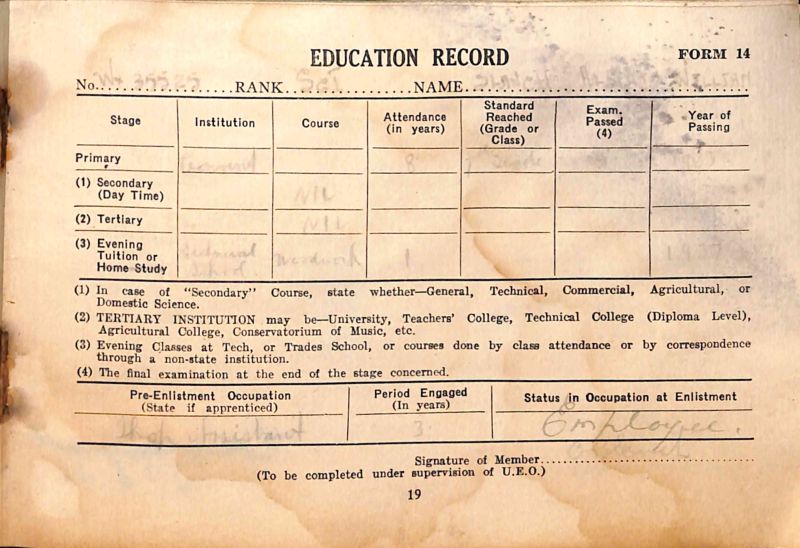 EDUCATION RECORD
FORM 14
No.................RANK................NAME...............................
Stage Institution Course Attendance (in years) Standard Reached (Grade or Class) Exam. Passed (4) Year of Passing
Primary 8
(1) Secondary (Day Time) NIL
(2) Tertiary NIL
(3) Evening Tuition or Home Study Technical School Woodwork 1 1937
(1) In case of "Secondary" Course, state whether—General, Technical, Commercial, Agricultural, or
Domestic Science.
(2) TERTIARY INSTITUTION may be—University, Teachers' College, Technical College (Diploma Level),
Agricultural College, Conservatorium of Music, etc.
(3) Evening Classes at Tech, or Trades School, or courses done by class attendance or by correspondence
through a non-state institution.
(4) The final examination at the end of the stage concerned.
Pre-Enlistment Occupation (State if apprenticed) Period Engaged (In years) Status in Occupation at Enlistment
Shop Assistant 3 Employee.
Signature of Member................................
(To be completed under supervision of U.E.O.)
19